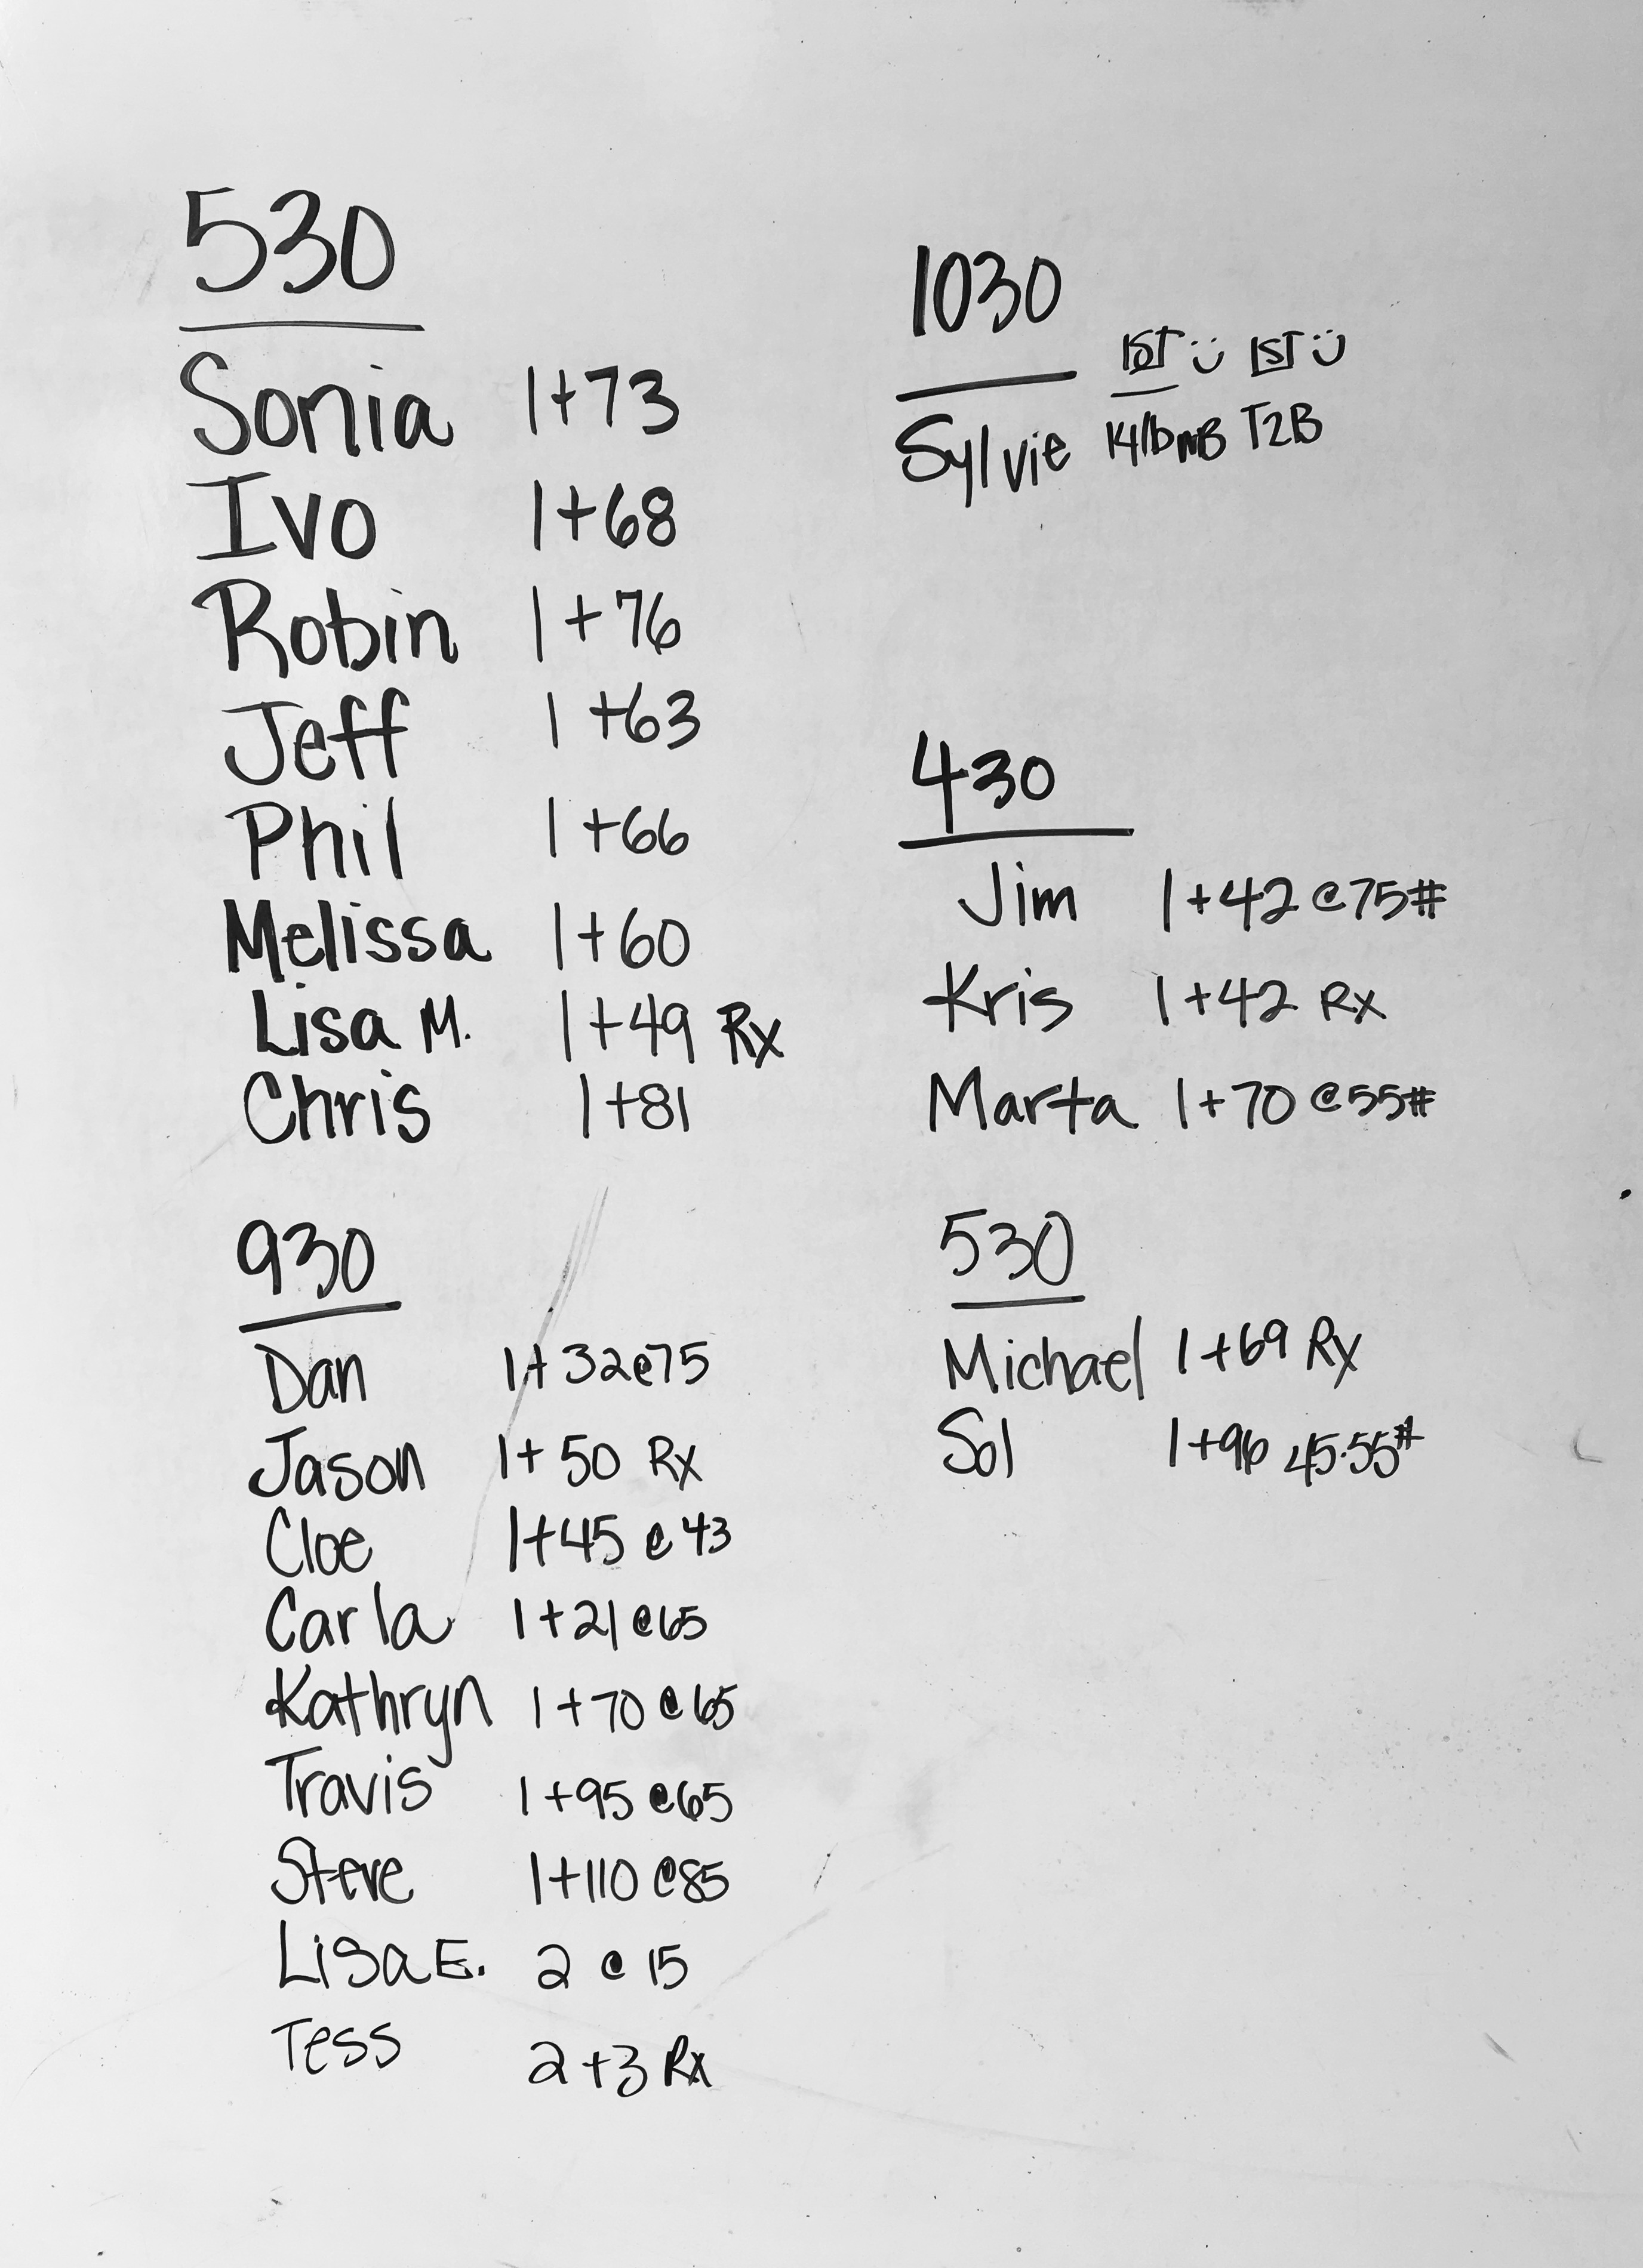 530
Sonia 1+73
Ivo 1+68
Robin 1+76
Jeff 1+63
Phil 1+66
Melissa 1+60
Lisa M. 1+49 Rx
Chris 1+81
930
Dan 1+32@75
Jason 1+50 Rx
Cloe 1+45 @ 43
Carla 1+21@65
Kathryn 1+70@65
Travis 1+95 @65
Steve 1+110 @85
Lisa E. 2 @ 15
Tess 2+3 Rx
1030
1ST 1ST
Sylvie 14lb MB T2B
430
Jim 1+42@75#
Kris 1+42 Rx
Marta 1+70@55#
530
Michael 1+69 Rx
Sol 1+96 45·55#